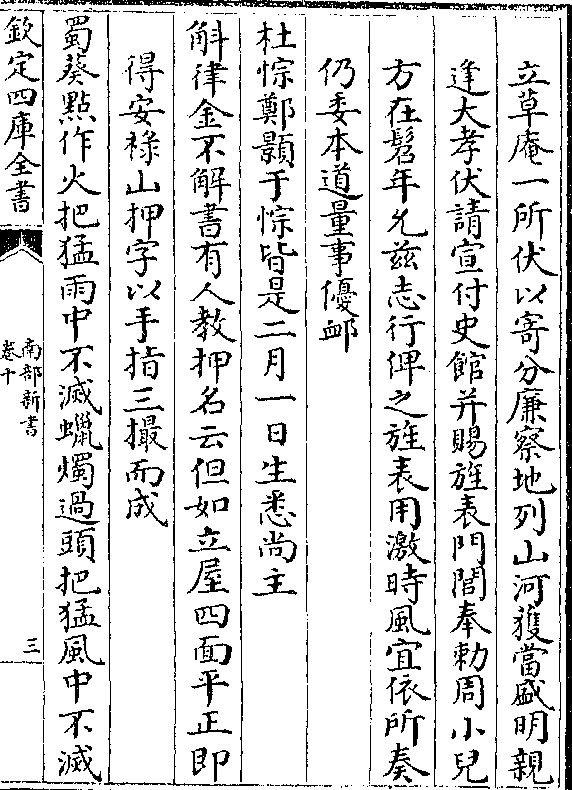 立草庵一所伏以寄分廉察地列山河獲當盛明親
逢大孝伏請宣付史館并賜旌表門閭奉勅周小兒
方在髫年允兹志行俾之旌表用激時風宜依所奏
仍委本道量事優䘏
杜悰鄭顥于悰皆是二月一日生悉尚主
斛律金不解書有人教押名云但如立屋四面平正即
得安祿山押字以手指三撮而成
蜀葵點作火把猛雨中不滅蠟燭過頭把猛風中不滅
欽定四庫全書
南部新書
卷十
三